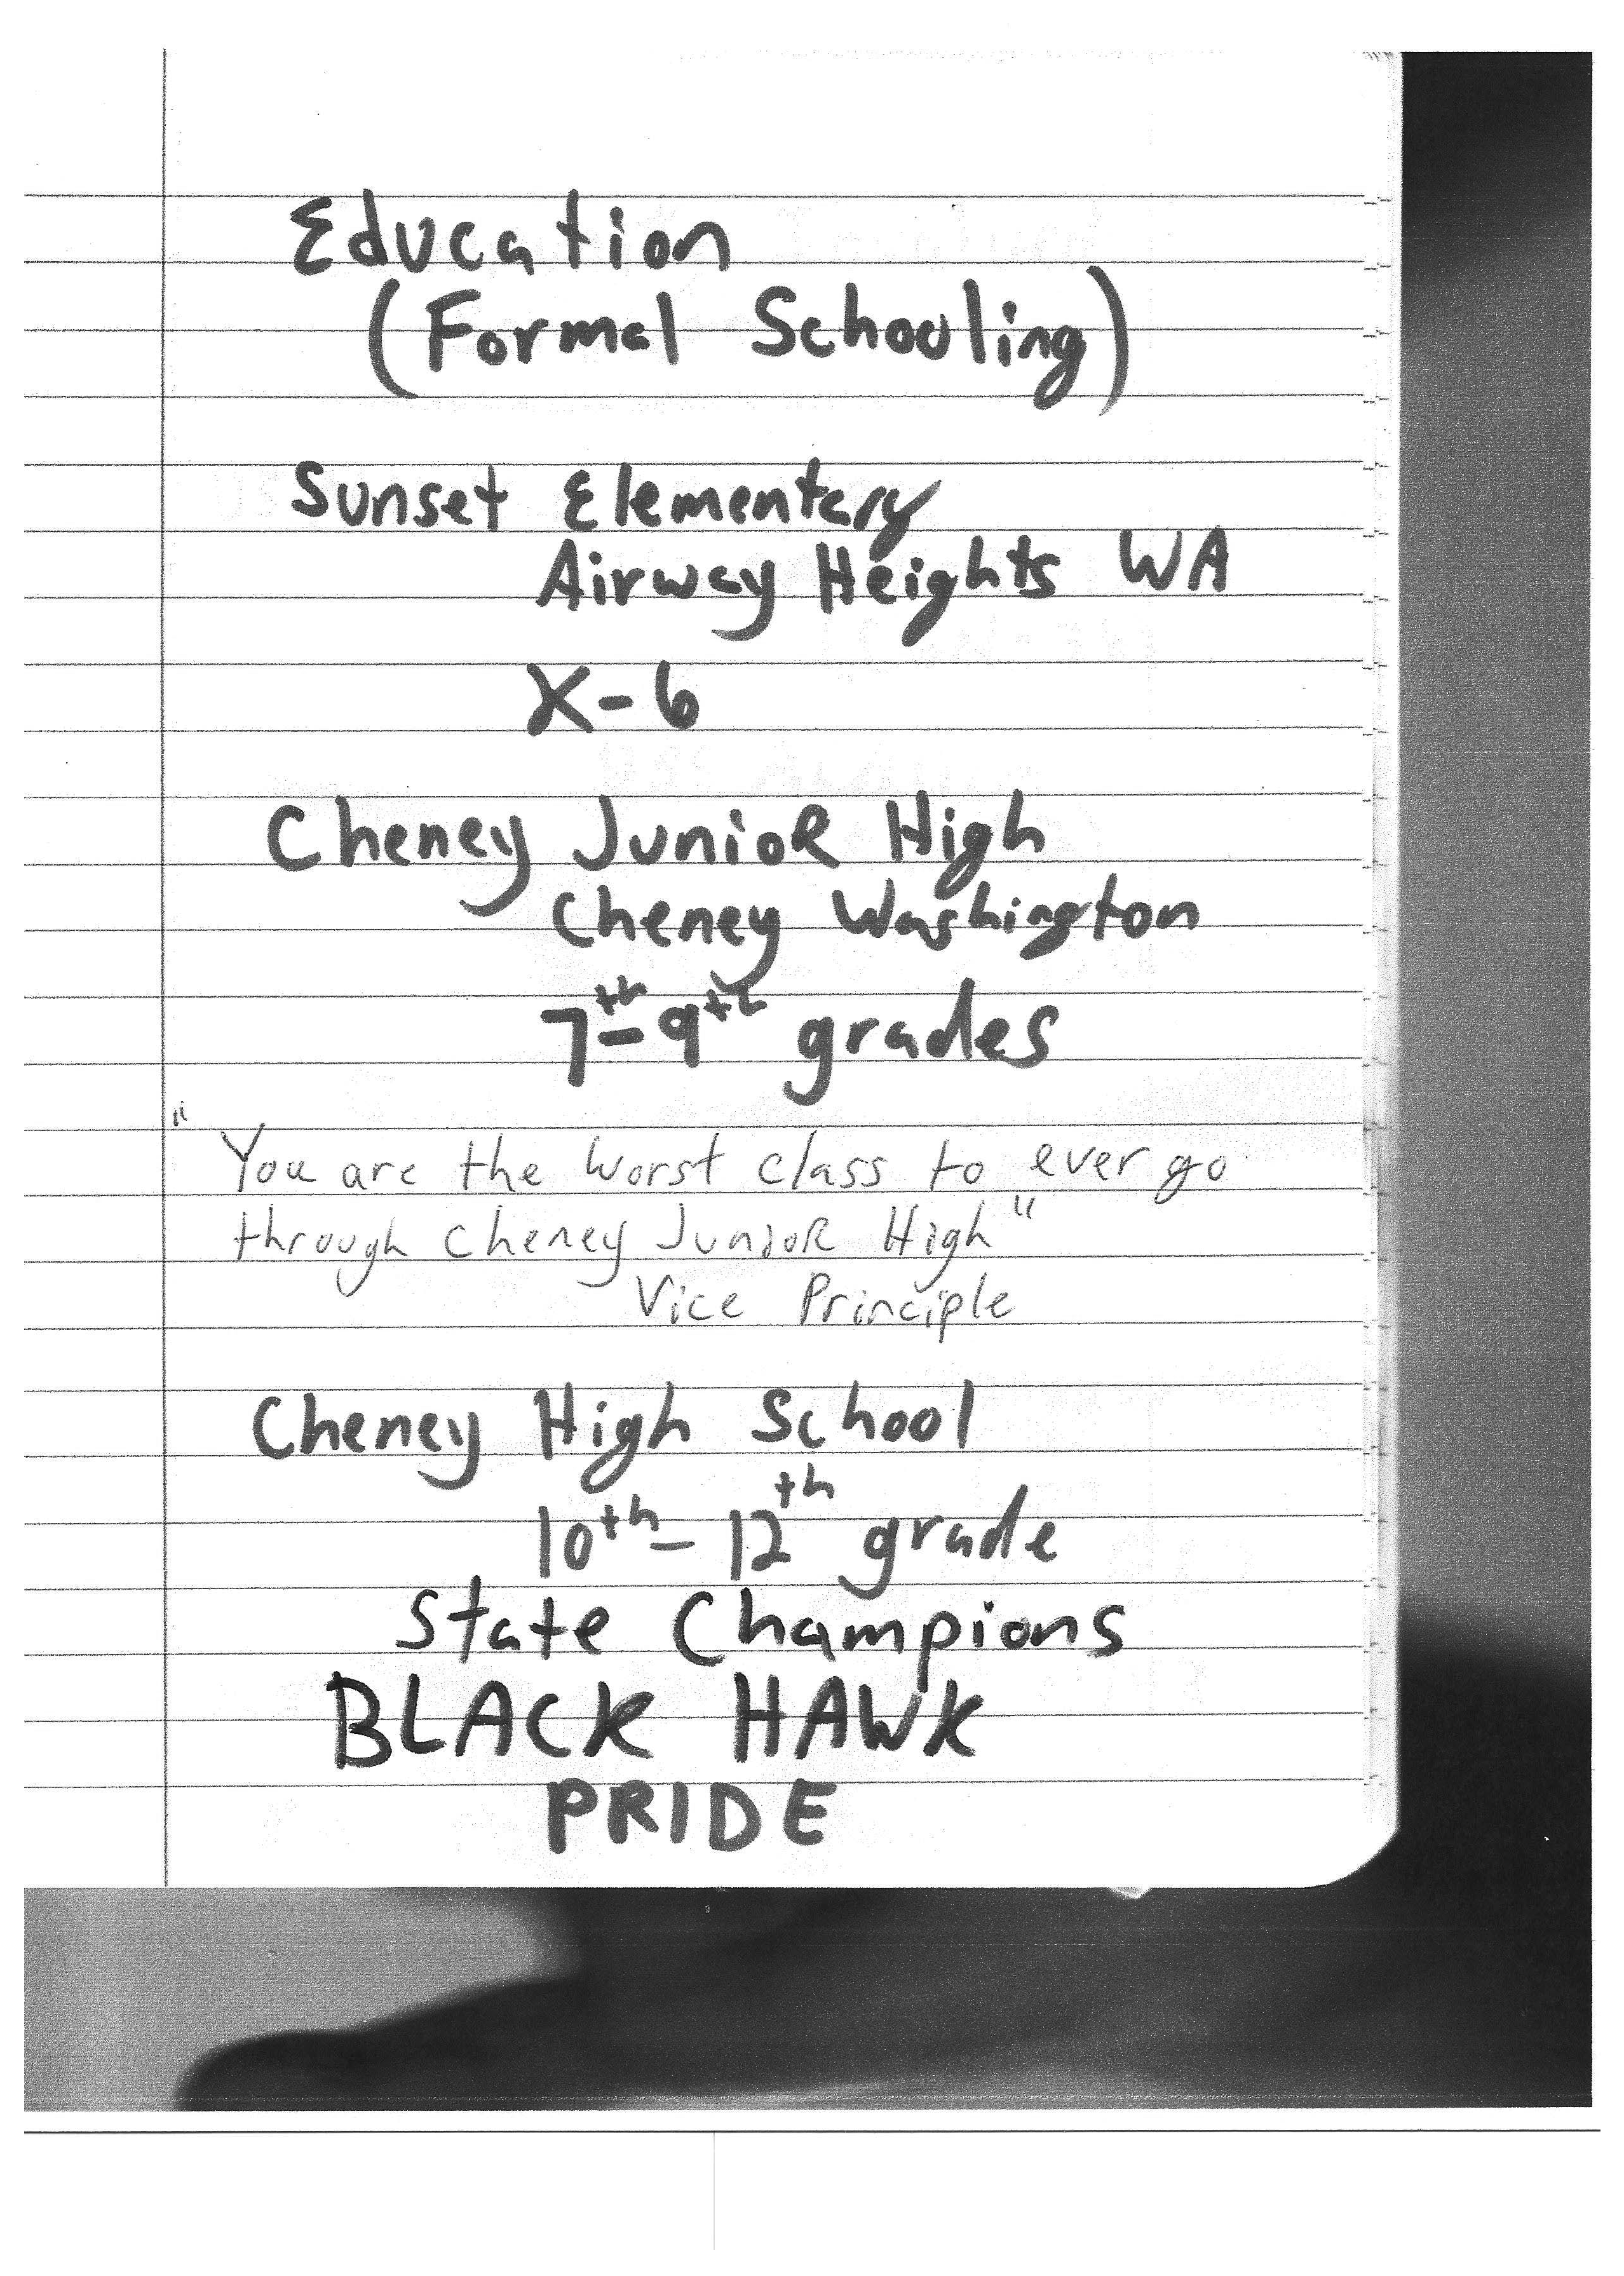 Education
(Formal Schooling)
Sunset Elementary
Airway Heights WA
K-6
Cheney JunioR High
Cheney Washington
7th-9th grades
"You are the worst class to ever go
through Cheney JunioR High"
Vice Principle
Cheney High School
10th-12th grade
State Champions
BLACK HAWK
PRIDE